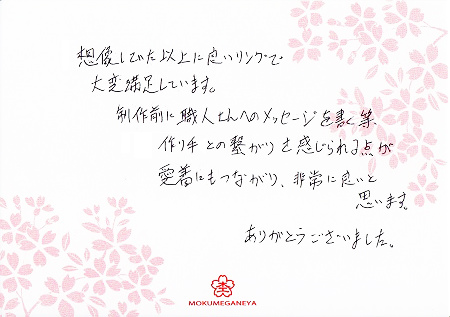 想像していた以上に良いリングで
大変満足しています。
制作前に職人さんへのメッセージを書く等、
作り手との繋がりを感じられる点が
愛着にもつながり、非常に良いと
思います。
ありがとうございました。
MOKUMEGANEYA